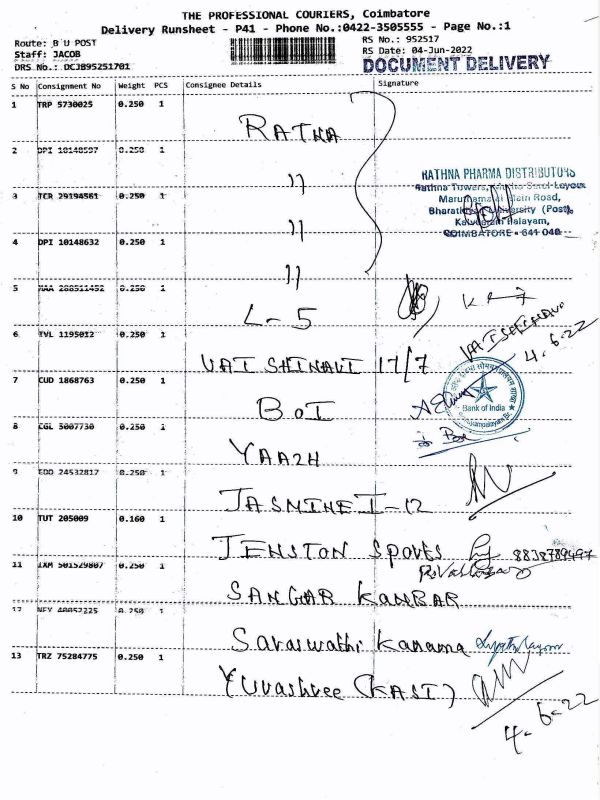 THE PROFESSIONAL COURIERS, Coimbatore
Delivery Runsheet - P41 - Phone No.:0422-3505555 - Page No.:1
Route: B U POST
Staff: JACOB
DRS No.: DCJB95251701
RS No.: 952517
RS Date: 04-Jun-2022
DOCUMENT DELIVERY
S No Consignment No Weight PCS Consignee Details Signature
1 TRP 5730025 0.250 1 RATHA
2 DPI 10148597 0.250 1 "
RATHNA PHARMA DISTRIBUTORS
Rathna Towers,
3 TCR 29194561 0.250 1 "
Main Road,
(Post),
4 DPI 10148632 0.250 1 "
COIMBATORE - 641 046
5 MAA 288511452 0.250 1 L-5
6 TVL 1195012 0.250 1 VAISHINAVI 17/7
4.6.22
7 CUD 1868763 0.250 1 BOI
Bank of India
8 CGL 3007730 0.250 1 YAAZH
9 EDD 24532817 0.250 1 JASMINE I-12
10 TUT 205009 0.160 1 JENSTON Sports
11 IXM 501529807 0.250 1 SANGAR KANBAR
12 0.250 1 Saraswathi Kanama
13 TRZ 75284775 0.250 1 Yuvashree (KASI)
4.6.22